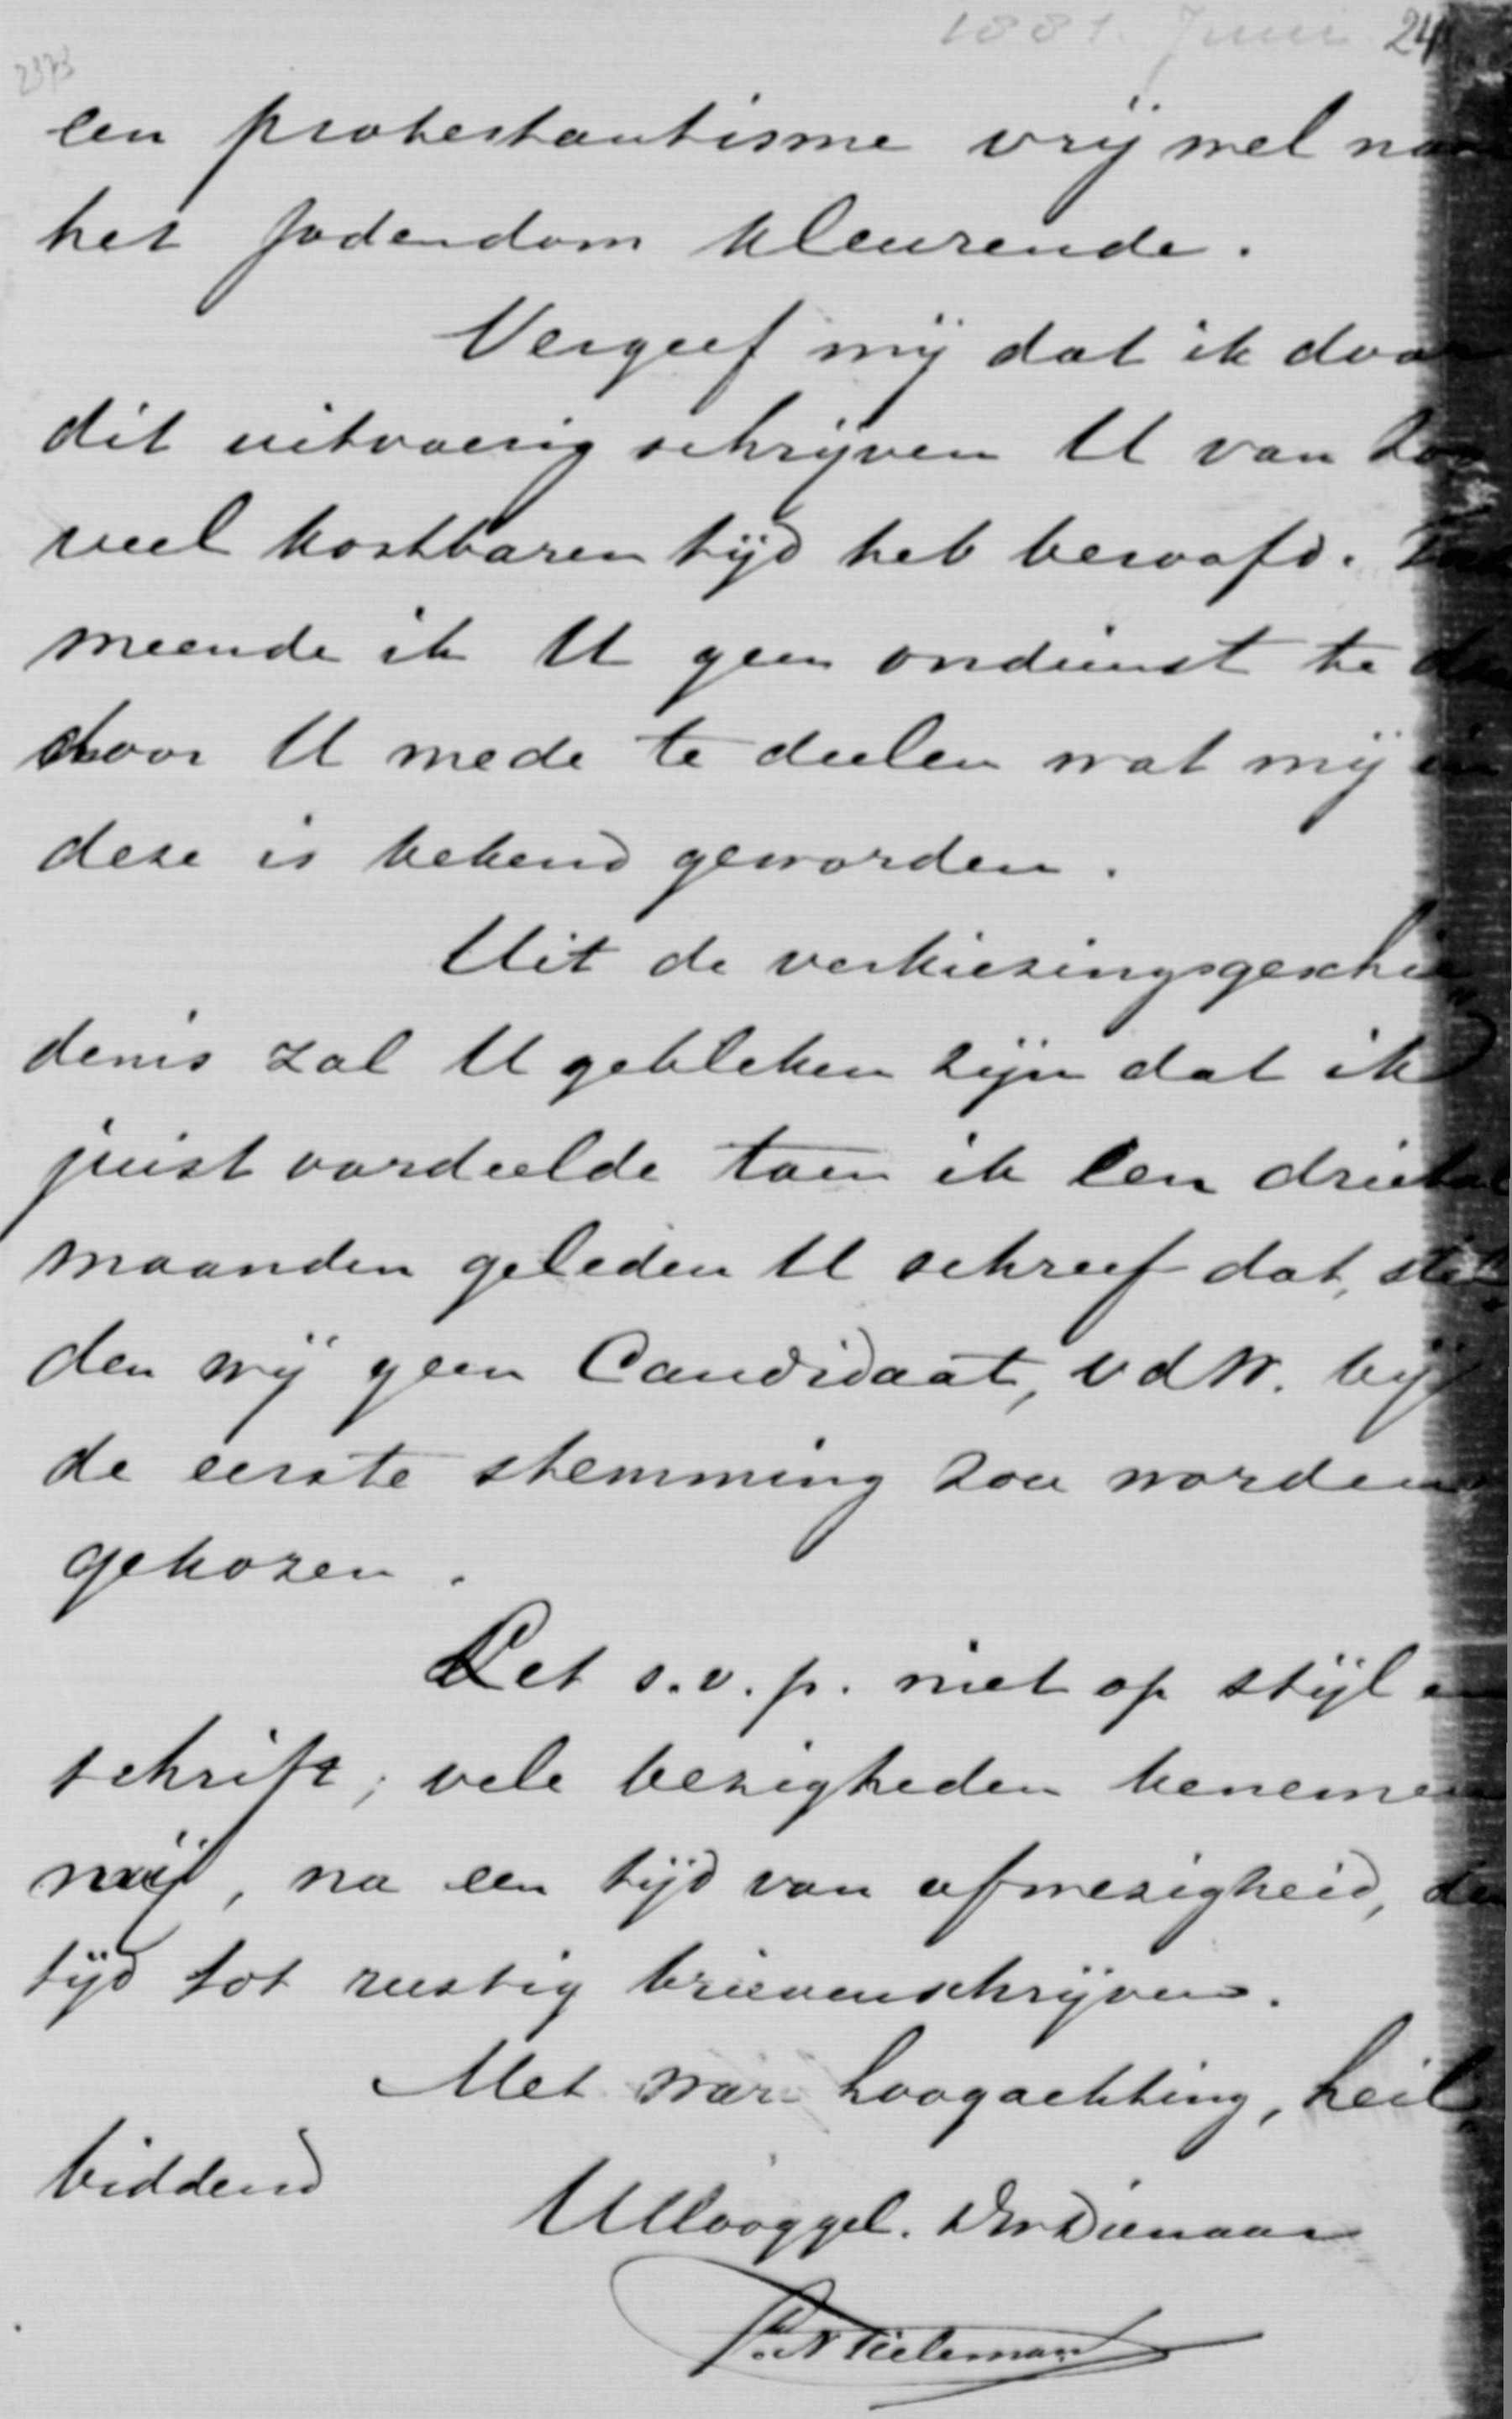 1881. Juni 24
2373
een protestantisme vrij wel naar
het Jodendom kleurende.
Vergeef mij dat ik door
dit uitvoerig schrijven U van zoo
veel kostbaren tijd heb beroofd. Toch
meende ik U geen ondienst te doen
door U mede te deelen wat mij in
deze is bekend geworden.
Uit de verkiezingsgeschie„
denis zal U gebleken zijn dat ik
juist oordeelde toen ik een drietal
maanden geleden U schreef dat, stel„
den wij geen Candidaat, v d W. bij
de eerste stemming zou worden
gekozen.
Let s.v.p. niet op stijl en
schrift; vele bezigheden benemen
mij, na een tijd van afwezigheid, den
tijd tot rustig brievenschrijven.
Met ware hoogachting, heil„
biddend
UHooggel. Dw Dienaar
Tieleman